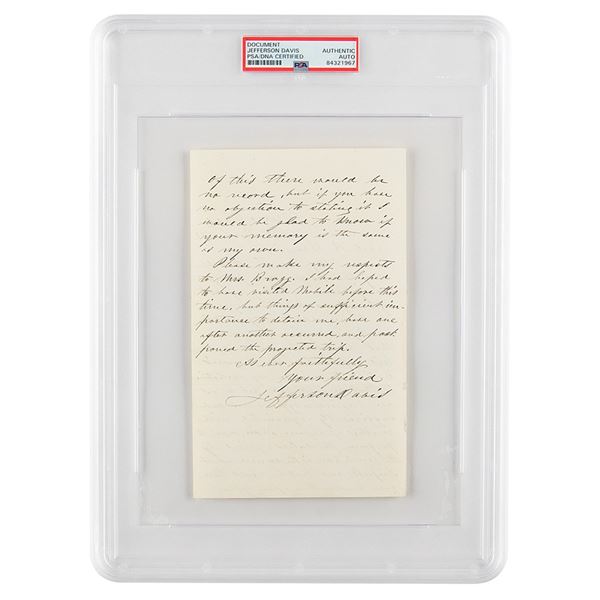 DOCUMENT
JEFFERSON DAVIS
PSA/DNA CERTIFIED
AUTHENTIC
AUTO
84321967
PSA
Of this there would be
no record, but if you have
no objection to stating it I
would be glad to know if
your memory is the same
as my own.
Please make my respects
to Mrs. Bragg. I had hoped
to have visited Mobile before this
time, but things of sufficient im-
portance to detain me, have one
after another occurred, and post
poned the projected trip.
As ever faithfully
Your friend
Jefferson Davis